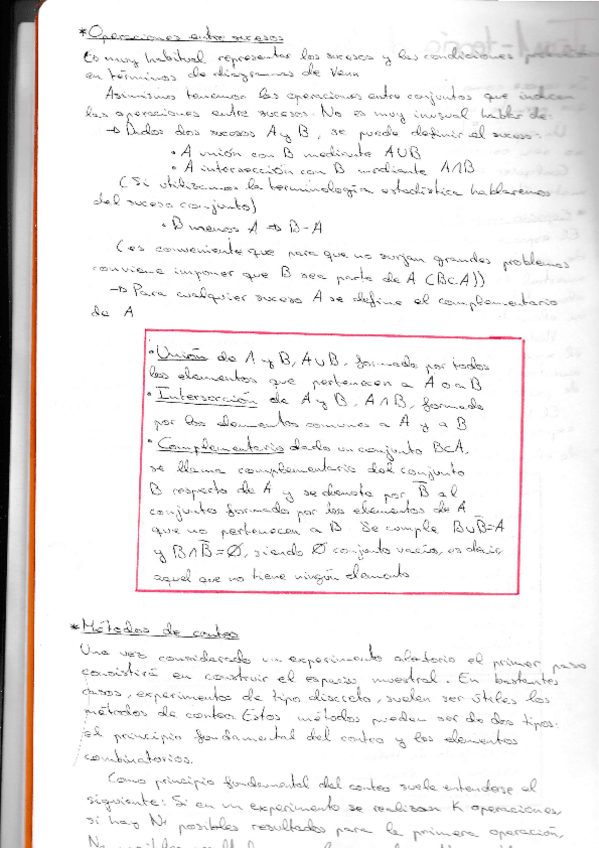 *Operaciones entre sucesos
Es muy habitual representar los sucesos y las condiciones
en términos de diagramas de Venn
Asimismo tenemos las operaciones entre conjuntos que inducen
las operaciones entre sucesos. No es muy inusual hablar de:
→ Dados dos sucesos A y B, se puede definir el suceso:
• A unión con B mediante A∪B
• A intersección con B mediante A∩B
(Si utilizamos la terminología estadística hablaremos
del suceso conjunto)
• B menos A ⇒ B-A
(es conveniente que para que no surjan grandes problemas
conviene imponer que B sea parte de A (B⊂A))
→ Para cualquier suceso A se define el complementario
de A
• Unión de A y B, A∪B, formado por todos
los elementos que pertenecen a A o a B
• Intersección de A y B, A∩B, formado
por los elementos comunes a A y a B
• Complementario dado un conjunto B⊂A,
se llama complementario del conjunto
B respecto de A y se denota por B̅ al
conjunto formado por los elementos de A
que no pertenecen a B. Se cumple B∪B̅=A
y B∩B̅=∅, siendo ∅ conjunto vacío, es decir
aquel que no tiene ningún elemento
*Métodos de conteo
Una vez considerado un experimento aleatorio el primer paso
consistirá en construir el espacio muestral. En bastantes
casos, experimentos de tipo discreto, suelen ser útiles los
métodos de conteo. Estos métodos pueden ser de dos tipos:
el principio fundamental del conteo y los elementos
combinatorios.
Como principio fundamental del conteo suele entenderse el
siguiente: Si en un experimento se realizan K operaciones,
si hay N₁ posibles resultados para la primera operación,